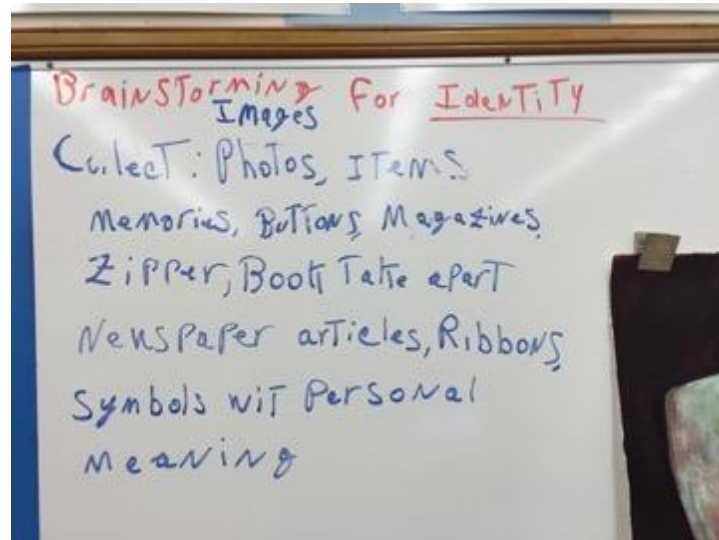 BrainSTorminG For IdenTiTy
Images
Collect: Photos, ITems
Memories, BuTTons, Magazines,
Zipper, Book Take apart
Newspaper arTicles, Ribbons,
Symbols wiT Personal
Meaning